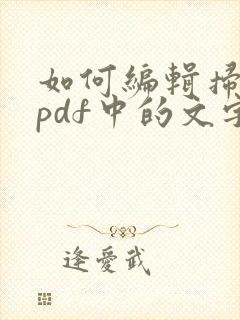 如何編輯掃
pdf中的文字
逢愛武